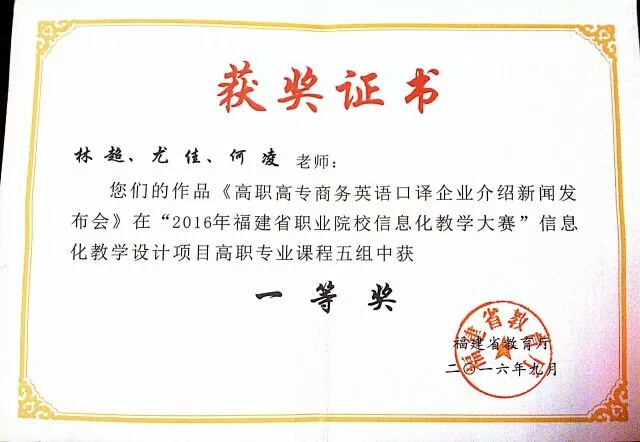 获奖证书
林超、尤佳、何凌老师：
您们的作品《高职高专商务英语口译企业介绍新闻发
布会》在“2016年福建省职业院校信息化教学大赛”信息
化教学设计项目高职专业课程五组中获
一等奖
福建省教育厅
福建省教育厅
二〇一六年九月